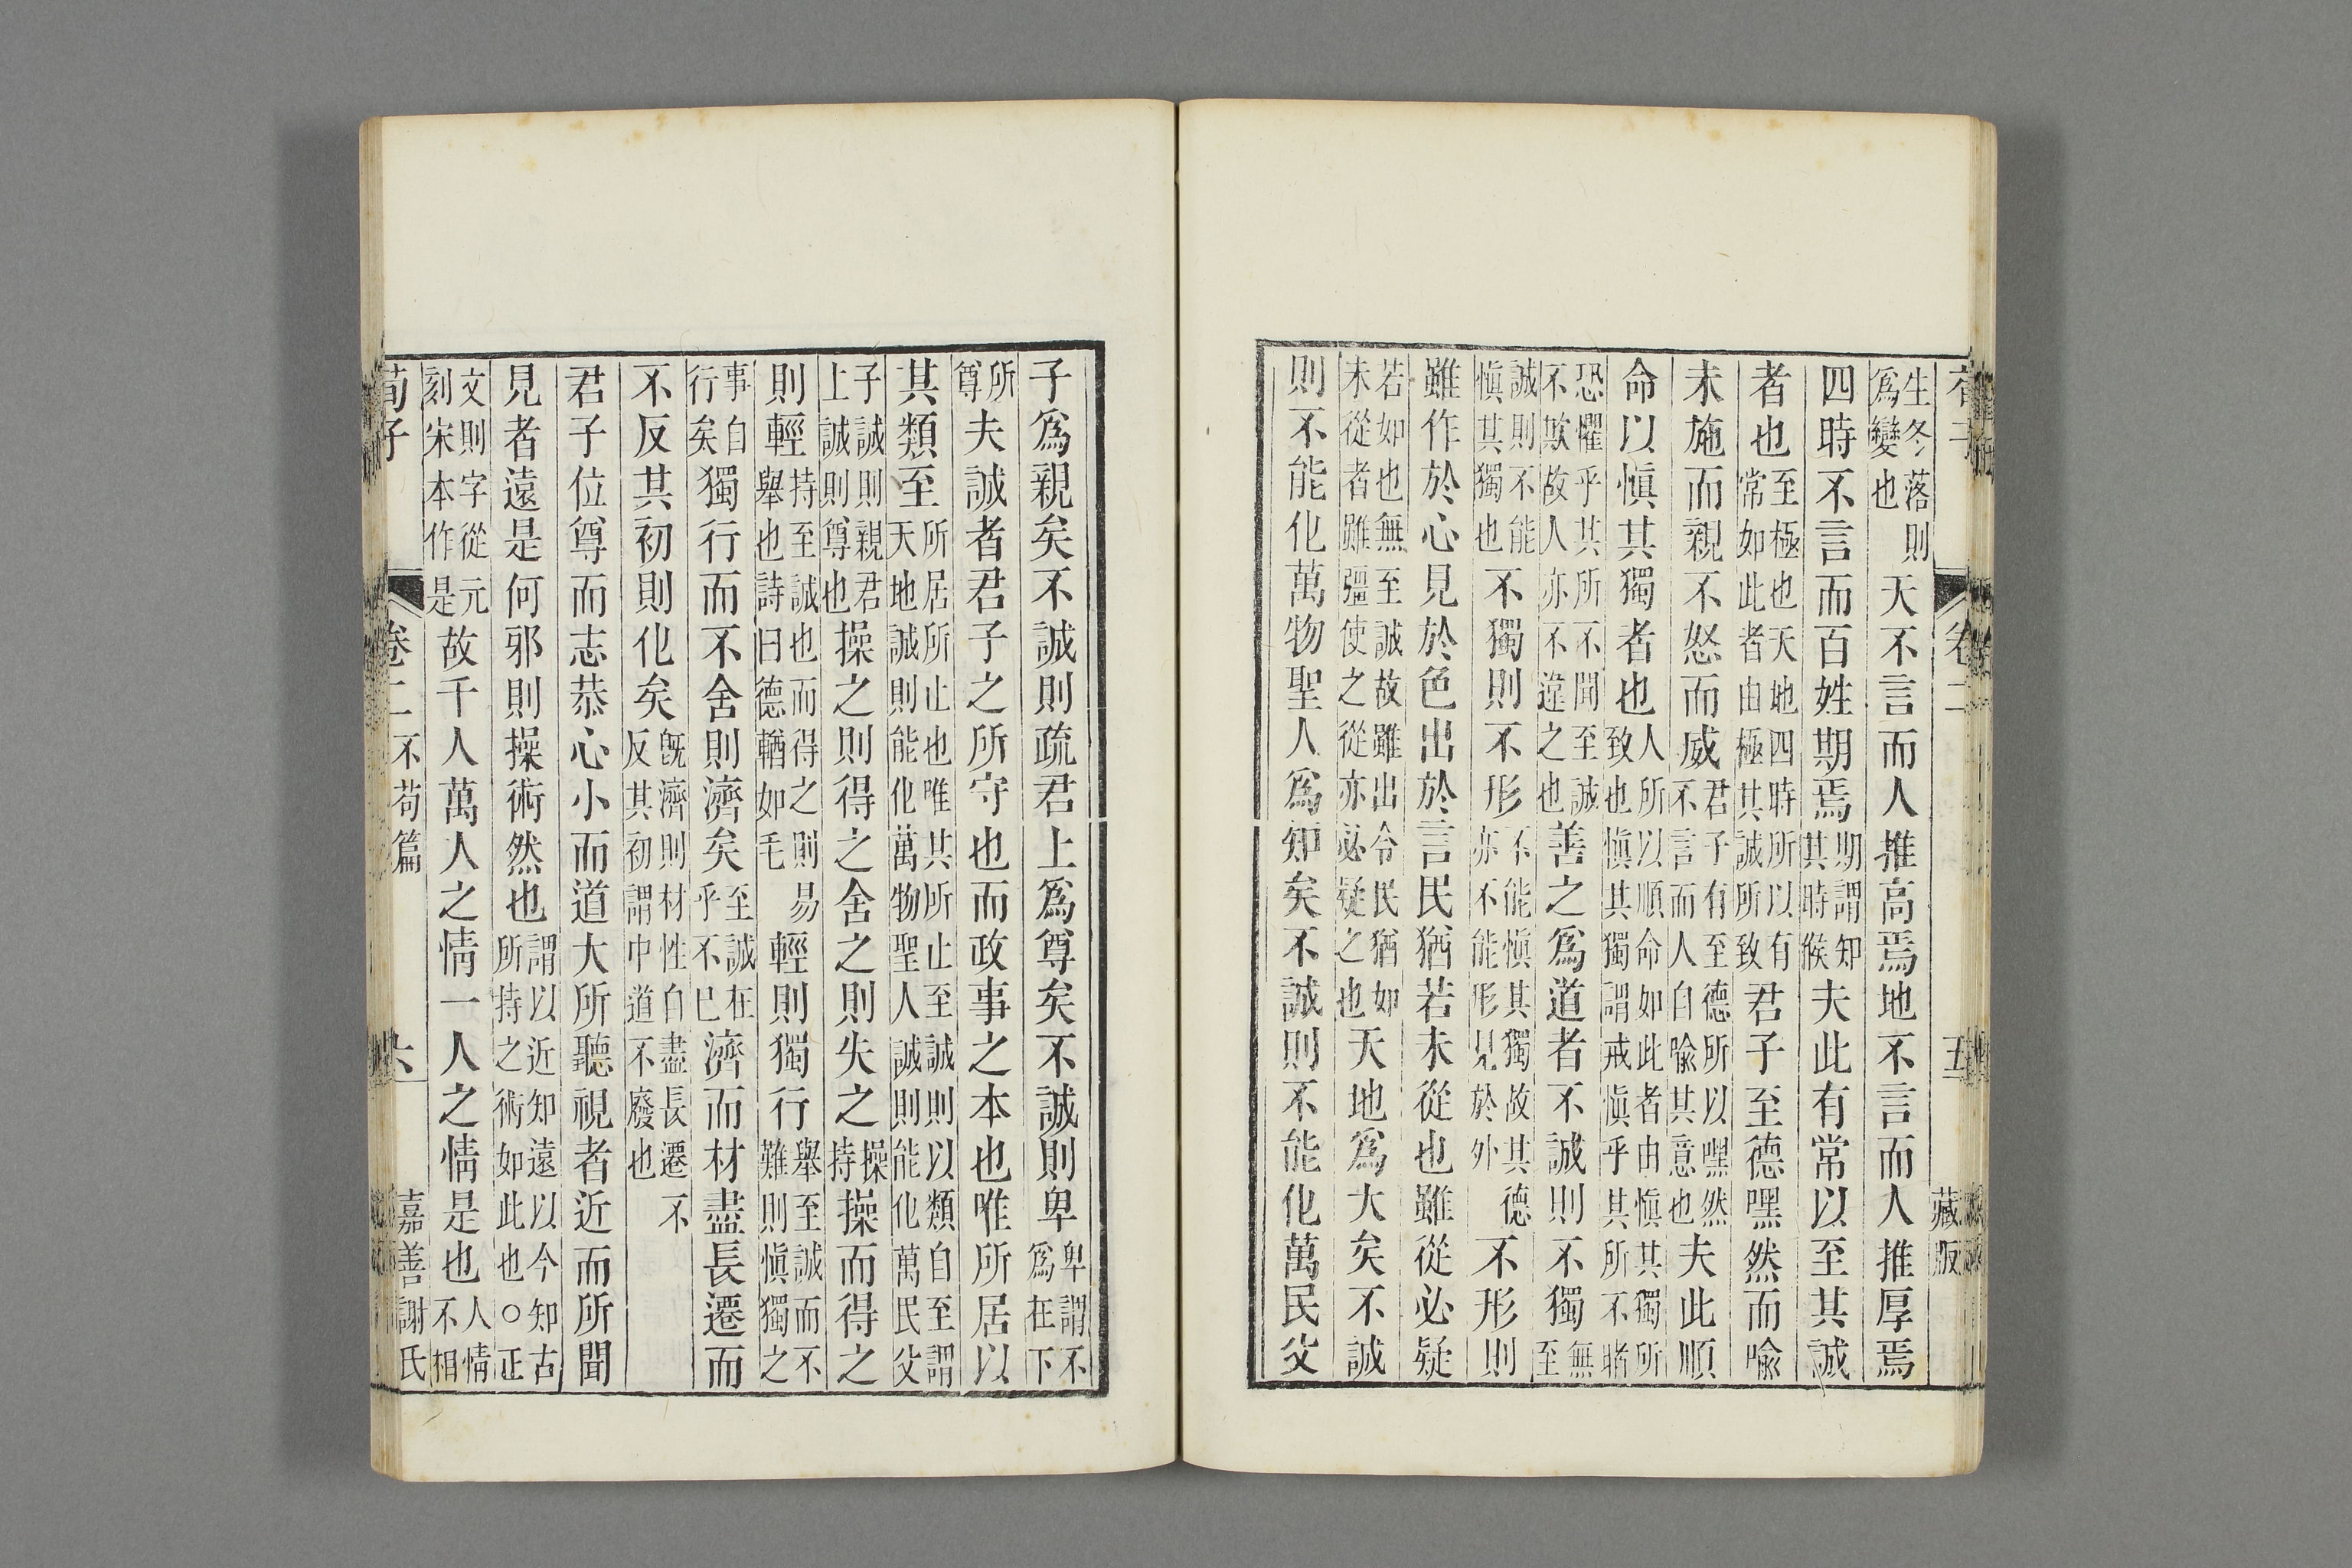 荀子 卷二 五 藏版
生冬落則爲變也天不言而人推高焉地不言而人推厚焉
四時不言而百姓期焉期謂知其時候夫此有常以至其誠
者也至極也天地四時所以有常如此者由極其誠所致君子至德嘿然而喻
未施而親不怒而威君子有至德所以嘿然不言而人自喻其意也夫此順
命以愼其獨者也人所以順命如此者由愼其獨所致也愼其獨謂戒愼乎其所不睹
恐懼乎其所不聞至誠不欺故人亦不違之也善之爲道者不誠則不獨無至
誠則不能愼其獨也不獨則不形不能愼其獨故其德亦不能形見於外不形則
雖作於心見於色出於言民猶若未從也雖從必疑
若如也無至誠故雖出令民猶如未從者雖彊使之從亦必疑之也天地爲大矣不誠
則不能化萬物聖人爲知矣不誠則不能化萬民父
子爲親矣不誠則疏君上爲尊矣不誠則卑卑謂不爲在下
所尊夫誠者君子之所守也而政事之本也唯所居以
其類至所居所止也唯其所止至誠則以類自至謂天地誠則能化萬物聖人誠則能化萬民父
子誠則親君上誠則尊也操之則得之舍之則失之操持操而得之
則輕持至誠也而得之則易舉也詩曰德輶如毛輕則獨行舉至誠而不難則愼獨之
事自行矣獨行而不舍則濟矣至誠在乎不已濟而材盡長遷而
不反其初則化矣旣濟則材性自盡長遷不反其初謂中道不廢也
君子位尊而志恭心小而道大所聽視者近而所聞
見者遠是何邪則操術然也謂以近知遠以今知古所持之術如此也○正
文則字從元刻宋本作是故千人萬人之情一人之情是也人情不相
荀子 卷二 不苟篇 六 嘉善謝氏